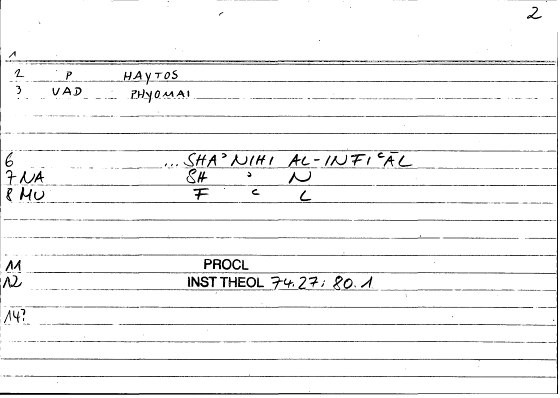 2
1
2 P HAYTOS
3 VAD PHYOMAI
6 ...SHAʾNIHI AL-INFIʿĀL
7 NA SH ʾ N
8 MU F ʿ L
11 PROCL
12 INST THEOL 74.27; 80.1
14?